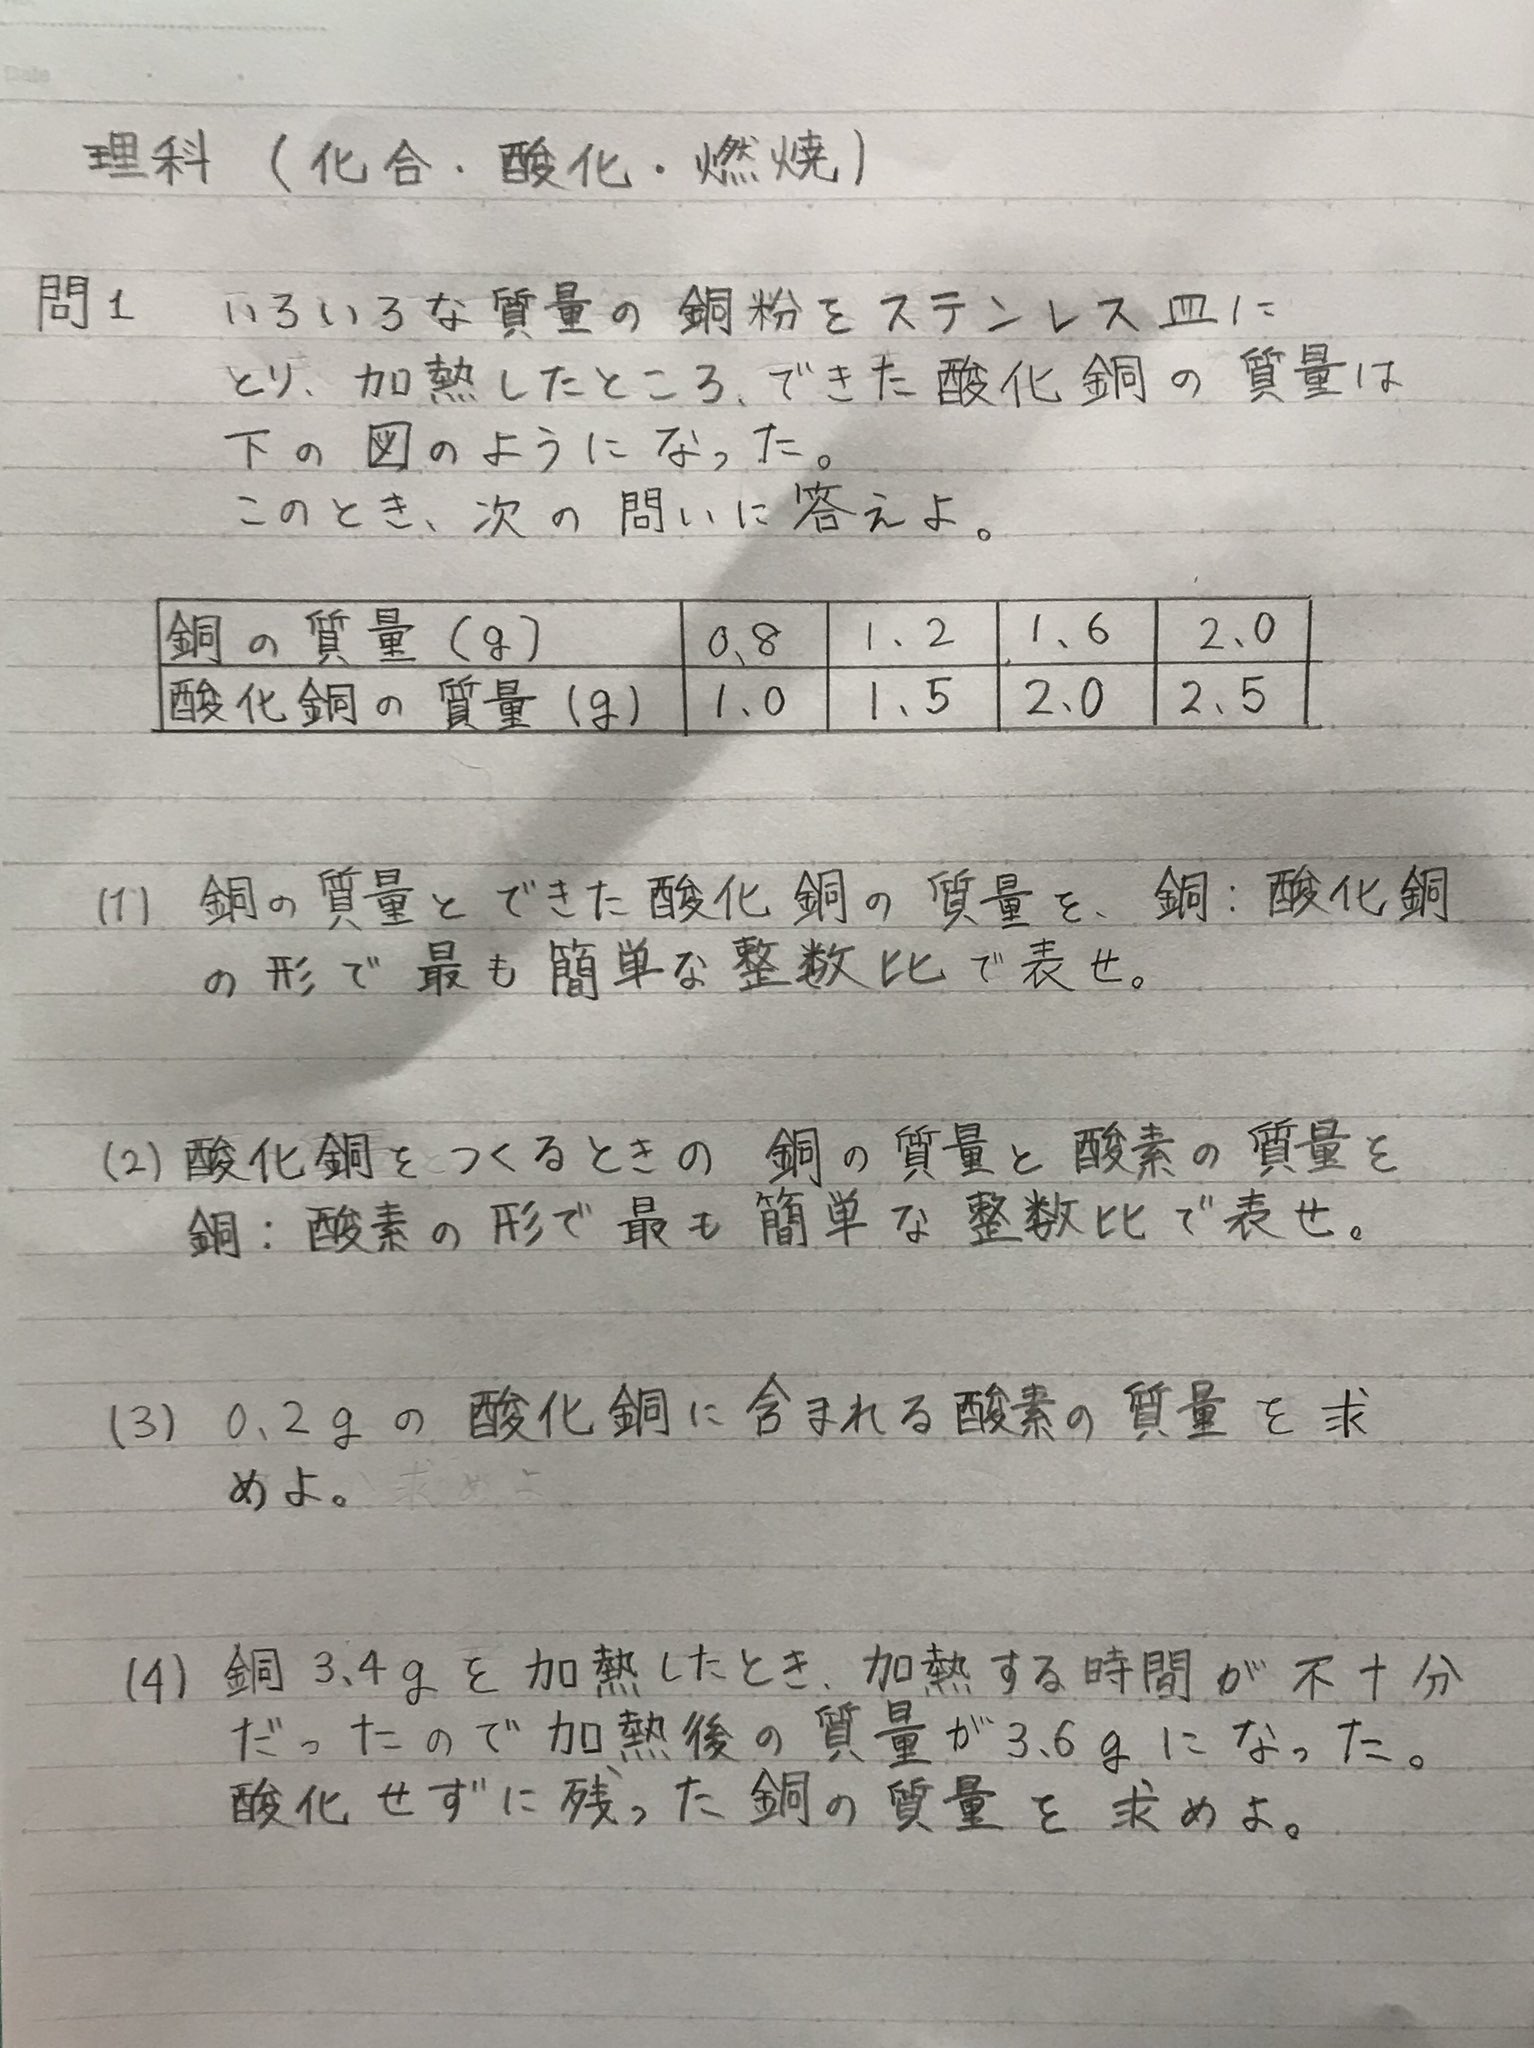 Date
理科 (化合・酸化・燃焼)
問1 いろいろな質量の銅粉をステンレス皿に
とり、加熱したところ、できた酸化銅の質量は
下の図のようになった。
このとき、次の問いに答えよ。
銅の質量(g) 0.8 1.2 1.6 2.0
酸化銅の質量(g) 1.0 1.5 2.0 2.5
(1) 銅の質量とできた酸化銅の質量を、銅:酸化銅
の形で最も簡単な整数比で表せ。
(2) 酸化銅をつくるときの銅の質量と酸素の質量を
銅:酸素の形で最も簡単な整数比で表せ。
(3) 0.2gの酸化銅に含まれる酸素の質量を求
めよ。
(4) 銅3.4gを加熱したとき、加熱する時間が不十分
だったので加熱後の質量が3.6gになった。
酸化せずに残った銅の質量を求めよ。